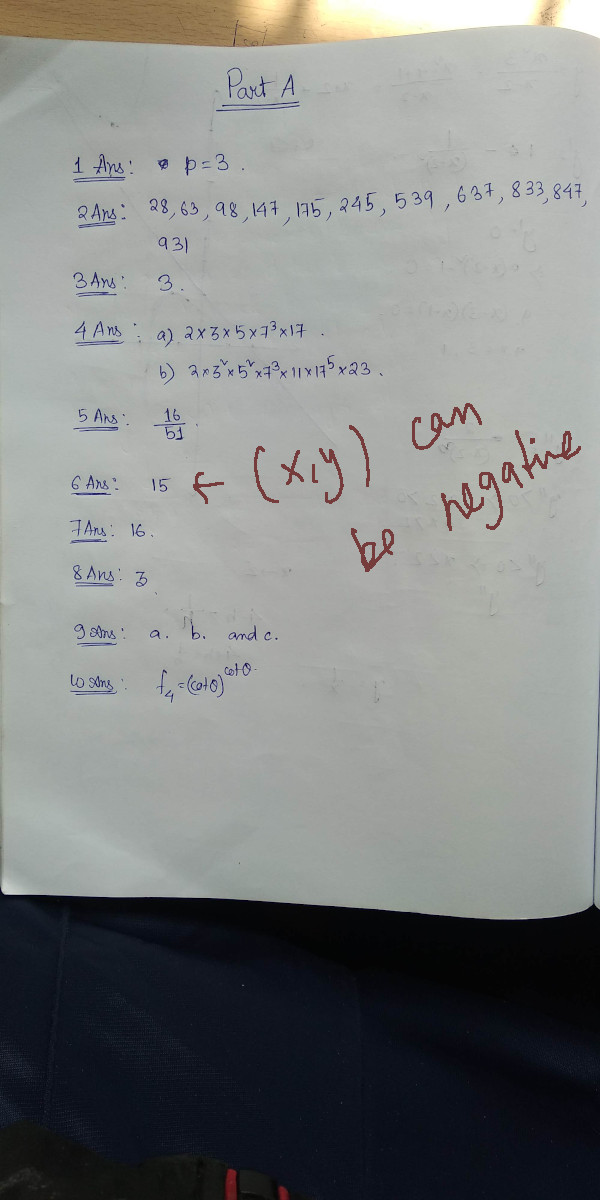 Part A
1 Ans: p=3.
2 Ans: 28, 63, 98, 147, 175, 245, 539, 637, 833, 847,
931
3 Ans: 3.
4 Ans: a) 2×3×5×7³×17.
b) 2×3²×5²×7³×11×17⁵×23.
5 Ans: 16/51.
6 Ans: 15 ← (x,y) can
be negative
7 Ans: 16.
8 Ans: 3
9 Ans: a. b. and c.
10 Ans: f₄=(cotθ)^cotθ.